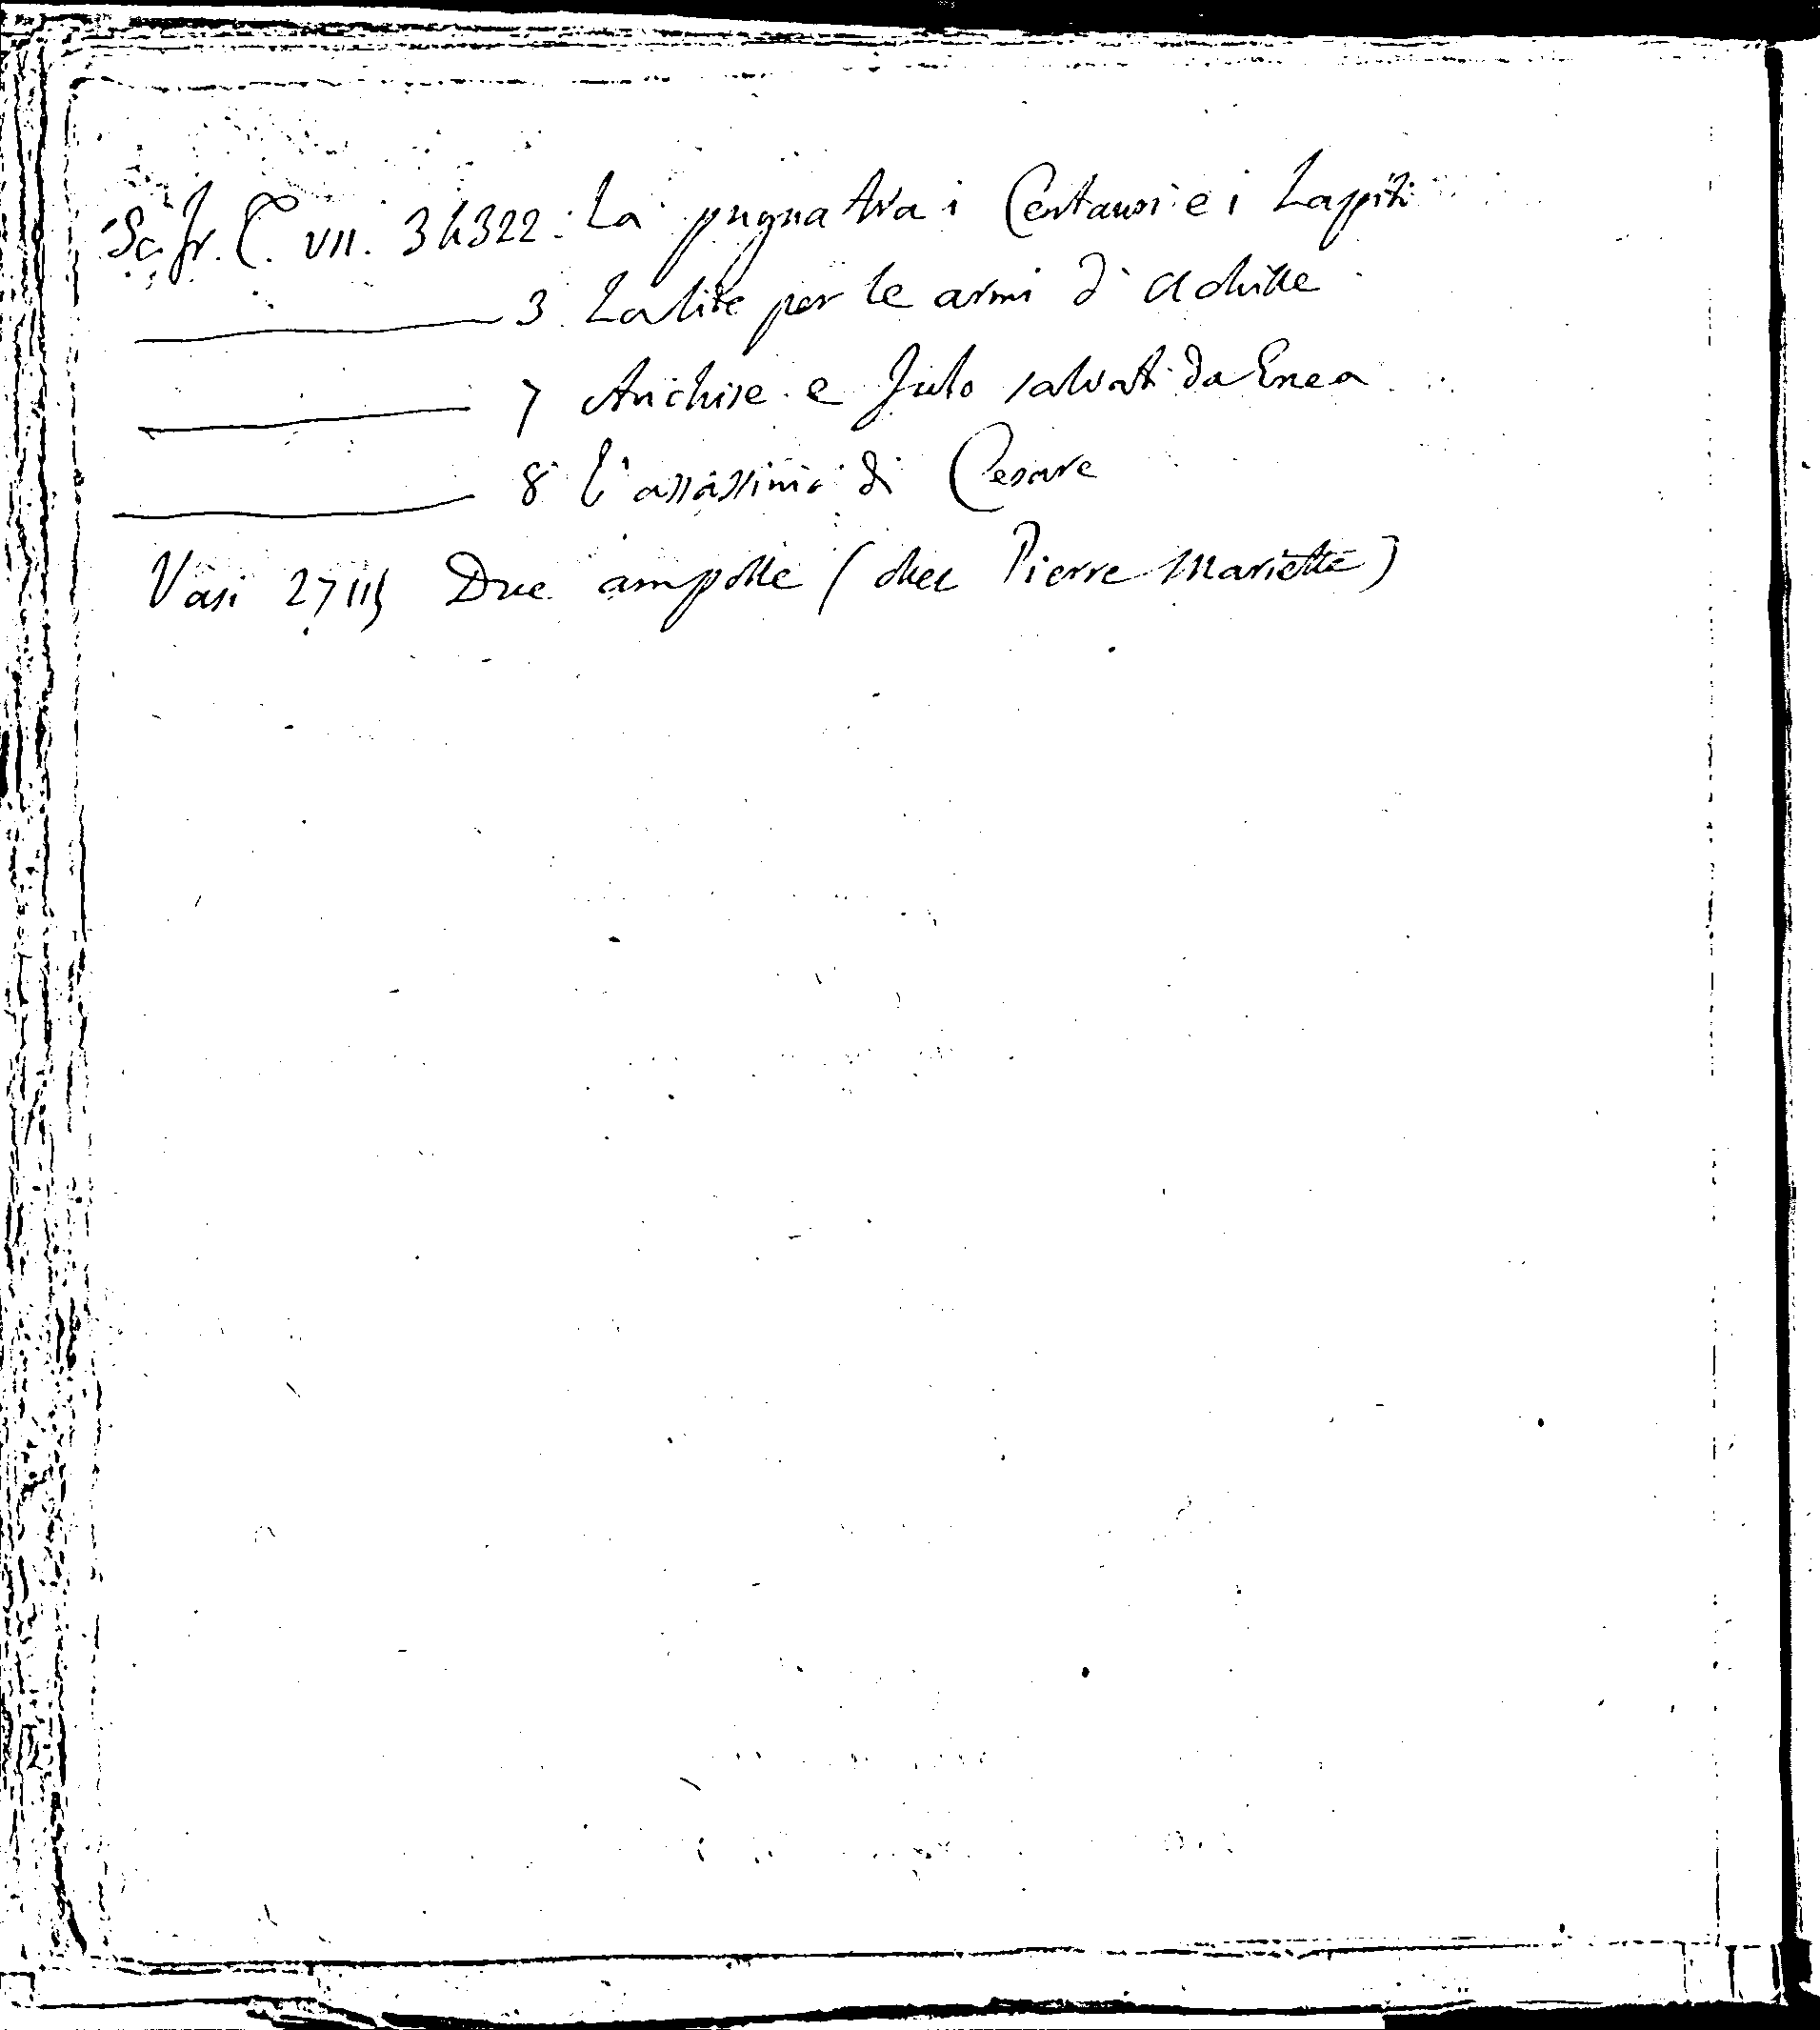 Sc. fr. C. VII. 34322. La pugna tra i Centauri e i Lapiti
3 La lite per le armi d'Achille
7 Anchise e Julo salvati da Enea
8 L'assassinio di Cesare
Vasi 27115 Due ampolle (chez Pierre Mariette)